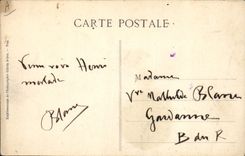 CARTE POSTALE
Venu voir Henri
malade
Blanc
Madame
Vve Mathilde Blanc
Gardanne
B du R